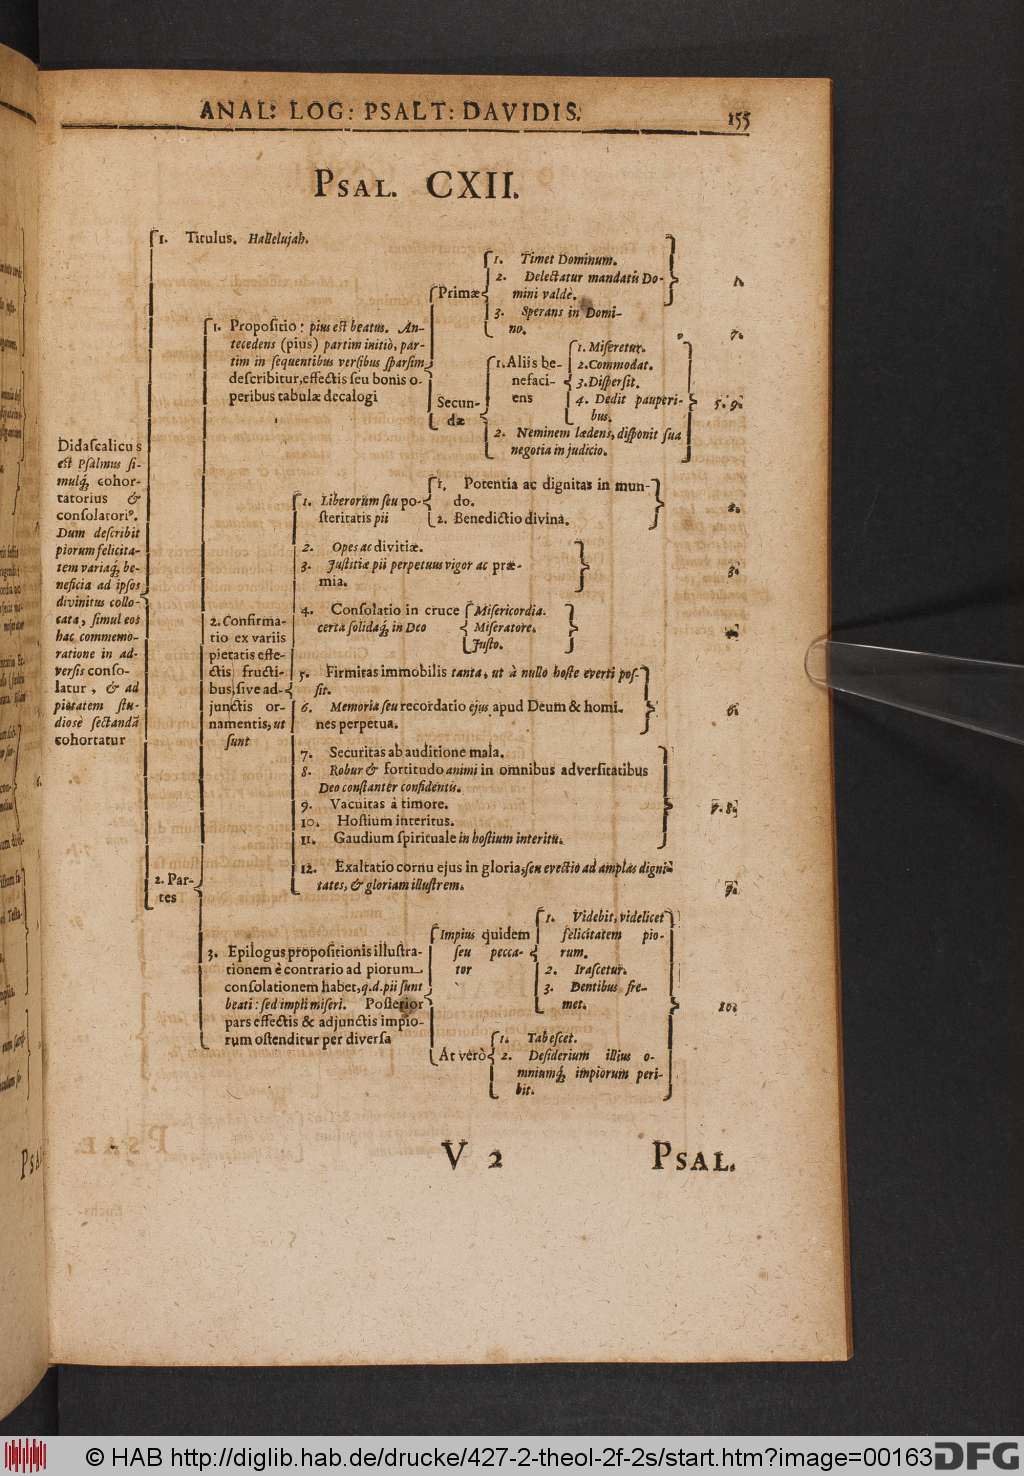 ANAL: LOG: PSALT: DAVIDIS.
155
PSAL. CXII.
Didascalicus
est Psalmus si-
mulq́; cohor-
tatorius &
consolatori⁹.
Dum describit
piorum felicita-
tem variaq́; be-
neficia ad ipsos
divinitus collo-
cata, simul eos
hac commemo-
ratione in ad-
versis conso-
latur, & ad
pietatem stu-
diosè sectandã
cohortatur
1. Titulus. Hallelujah.
2. Par-
tes
1. Propositio: pius est beatus. An-
tecedens (pius) partim initiò, par-
tim in sequentibus versibus sparsim
describitur, effectis seu bonis o-
peribus tabulæ decalogi
Primæ
1. Timet Dominum.
2. Delectatur mandatis Do-
mini valdè.
3. Sperans in Domi-
no.
7.
Secun-
dæ
1. Aliis be-
nefaci-
ens
1. Miseretur.
2. Commodat.
3. Dispersit.
4. Dedit pauperi-
bus.
2. Neminem lædens, disponit sua
negotia in judicio.
5. 9.
2. Confirma-
tio ex variis
pietatis effe-
ctis fructi-
bus, sive ad-
junctis or-
namentis, ut
sunt
1. Liberorum seu po-
steritatis pii
1. Potentia ac dignitas in mun-
do.
2. Benedictio divina.
2.
2. Opes ac divitiæ.
3. Justitiæ pii perpetuus vigor ac præ-
mia.
3.
4. Consolatio in cruce
certa solidaq́; in Deo
Misericordia.
Miseratore.
Justo.
5. Firmitas immobilis tanta, ut à nullo hoste everti pos-
sit.
6. Memoria seu recordatio ejus apud Deum & homi-
nes perpetua.
6.
7. Securitas ab auditione mala.
8. Robur & fortitudo animi in omnibus adversitatibus
Deo constanter confidentis.
9. Vacuitas à timore.
10. Hostium interitus.
11. Gaudium spirituale in hostium interitu.
7. 8.
12. Exaltatio cornu ejus in gloria, seu erectio ad amplas digni-
tates, & gloriam illustrem.
9.
3. Epilogus propositionis illustra-
tionem è contrario ad piorum
consolationem habet, q.d. pii sunt
beati: sed impii miseri. Posterior
pars effectis & adjunctis impio-
rum ostenditur per diversa
Impius quidem
seu pecca-
tor
1. Videbit, videlicet
felicitatem pio-
rum.
2. Irascetur.
3. Dentibus fre-
met.
At verò
1. Tabescet.
2. Desiderium illius o-
mniumq́; impiorum peri-
bit.
10.
V 2
PSAL.
© HAB http://diglib.hab.de/drucke/427-2-theol-2f-2s/start.htm?image=00163
DFG